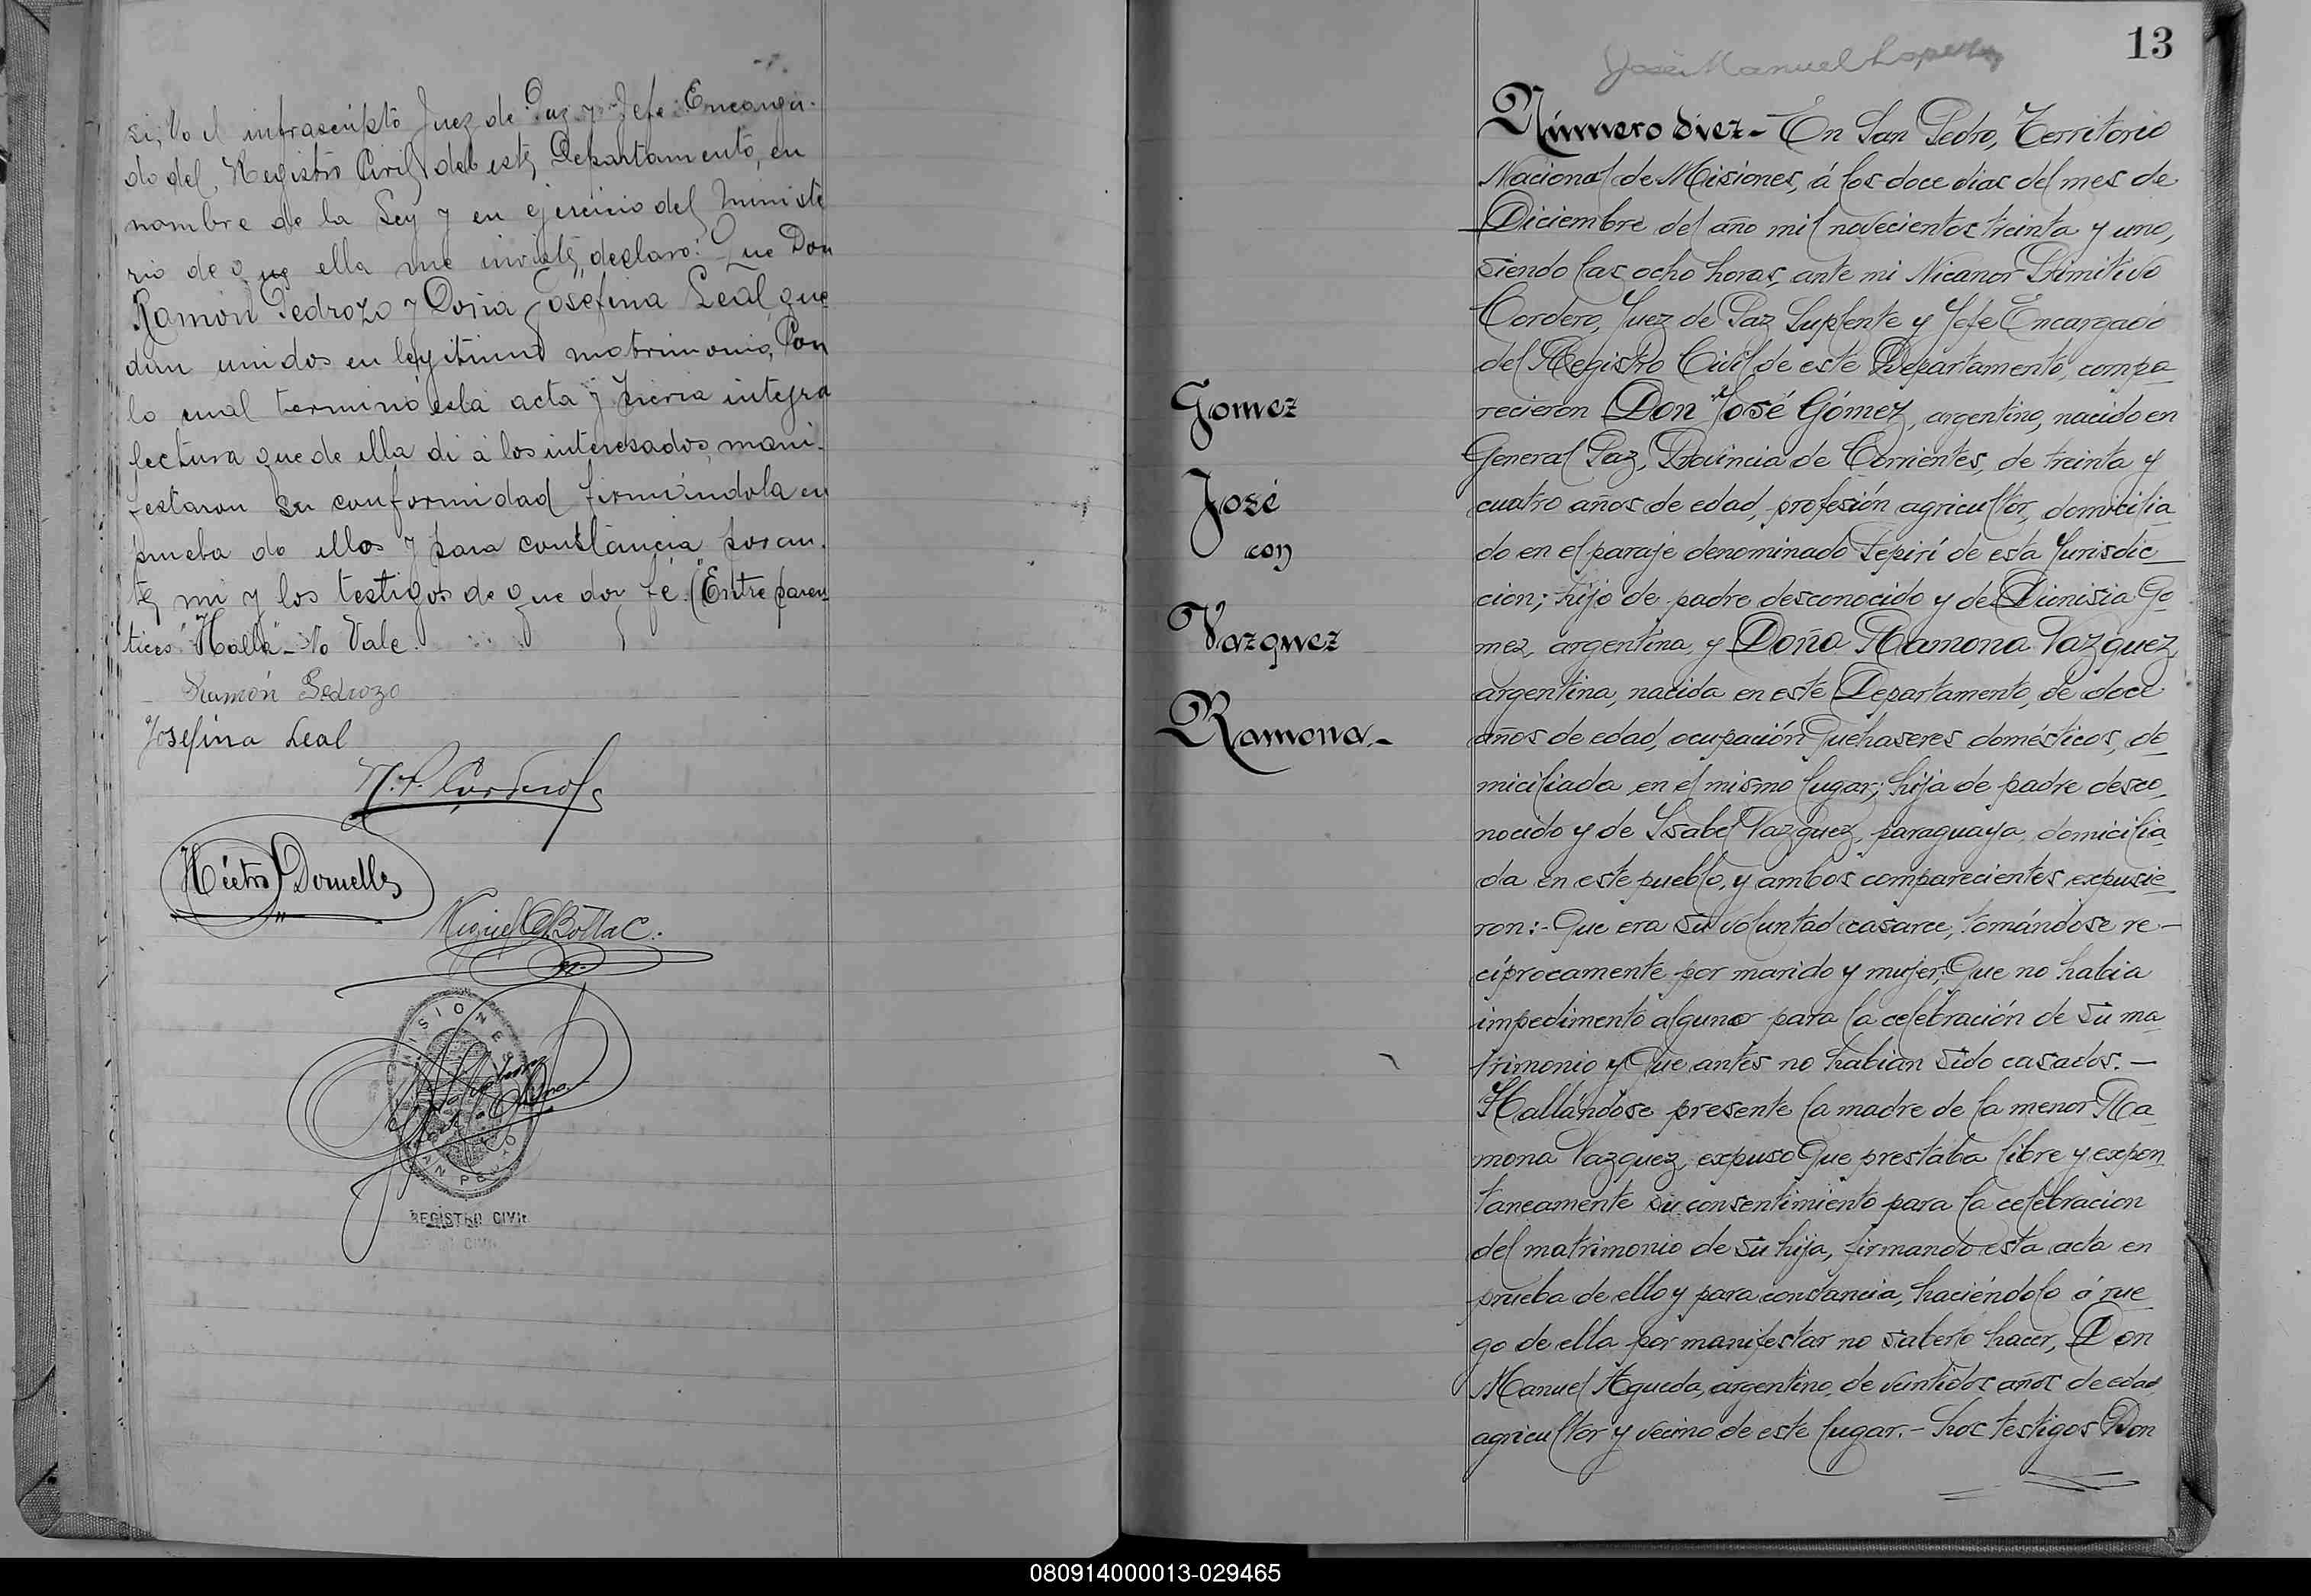 si, Yo el infrascripto Juez de Paz y Jefe Encarga-
do del Registro Civil del este Departamento, en
nombre de la Ley y en ejercicio del Ministe
rio de que ella me inviste, declaro: Que Don
Ramón Pedrozo y Doña Josefina Leal que
dan unidos en legitimo matrimonio, Con
lo cual terminó esta acta y previa integra
lectura que de ella di á los interesados, mani-
festaron su conformidad firmándola en
prueba de ello y para constancia por an-
te mi y los testigos de que doy fé. (Entre paren
tices "Halla" No Vale.
Ramón Pedrozo
Josefina Leal
N. P. Cordero
Héctor Dornelles
Miguel Botta C.
MISIONES
SAN PEDRO
REGISTRO CIVIL
13
José Manuel Lopez
Número diez- En San Pedro, Territorio
Nacional de Misiones, á los doce dias del mes de
Diciembre del año mil novecientos treinta y uno,
siendo las ocho horas, ante mi Nicanor Primitivo
Cordero, Juez de Paz Suplente y Jefe Encargado
del Registro Civil de este Departamento, compa
recieron Don José Gómez, argentino, nacido en
General Paz, Provincia de Corrientes, de treinta y
cuatro años de edad, profesión agricultor, domicilia
do en el paraje denominado Pepirí de esta Jurisdic
cion; hijo de padre desconocido y de Dionisia Go
mez, argentina, y Doña Ramona Vazquez,
argentina, nacida en este Departamento, de doce
años de edad, ocupación Quehaseres domésticos, do
miciliada en el mismo lugar; hija de padre desco
nocido y de Isabel Vazquez, paraguaya, domicilia
da en este pueblo, y ambos comparecientes expusie
ron:- Que era su voluntad casarce, tomándose re-
ciprocamente por marido y mujer; Que no habia
impedimento alguno para la celebración de su ma
trimonio y Que antes no habian sido casados.-
Hallándose presente la madre de la menor Ra
mona Vazquez, expuso Que prestaba libre y expon
taneamente su consentimiento para la celebracion
del matrimonio de su hija, firmando esta acta en
prueba de ello y para constancia, haciéndolo á rue
go de ella por manifestar no saberlo hacer, Don
Manuel Agueda, argentino, de veintidos años de edad
agricultor y vecino de este lugar.- Los testigos Don
Gomez
José
con
Vazquez
Ramona.-
080914000013-029465